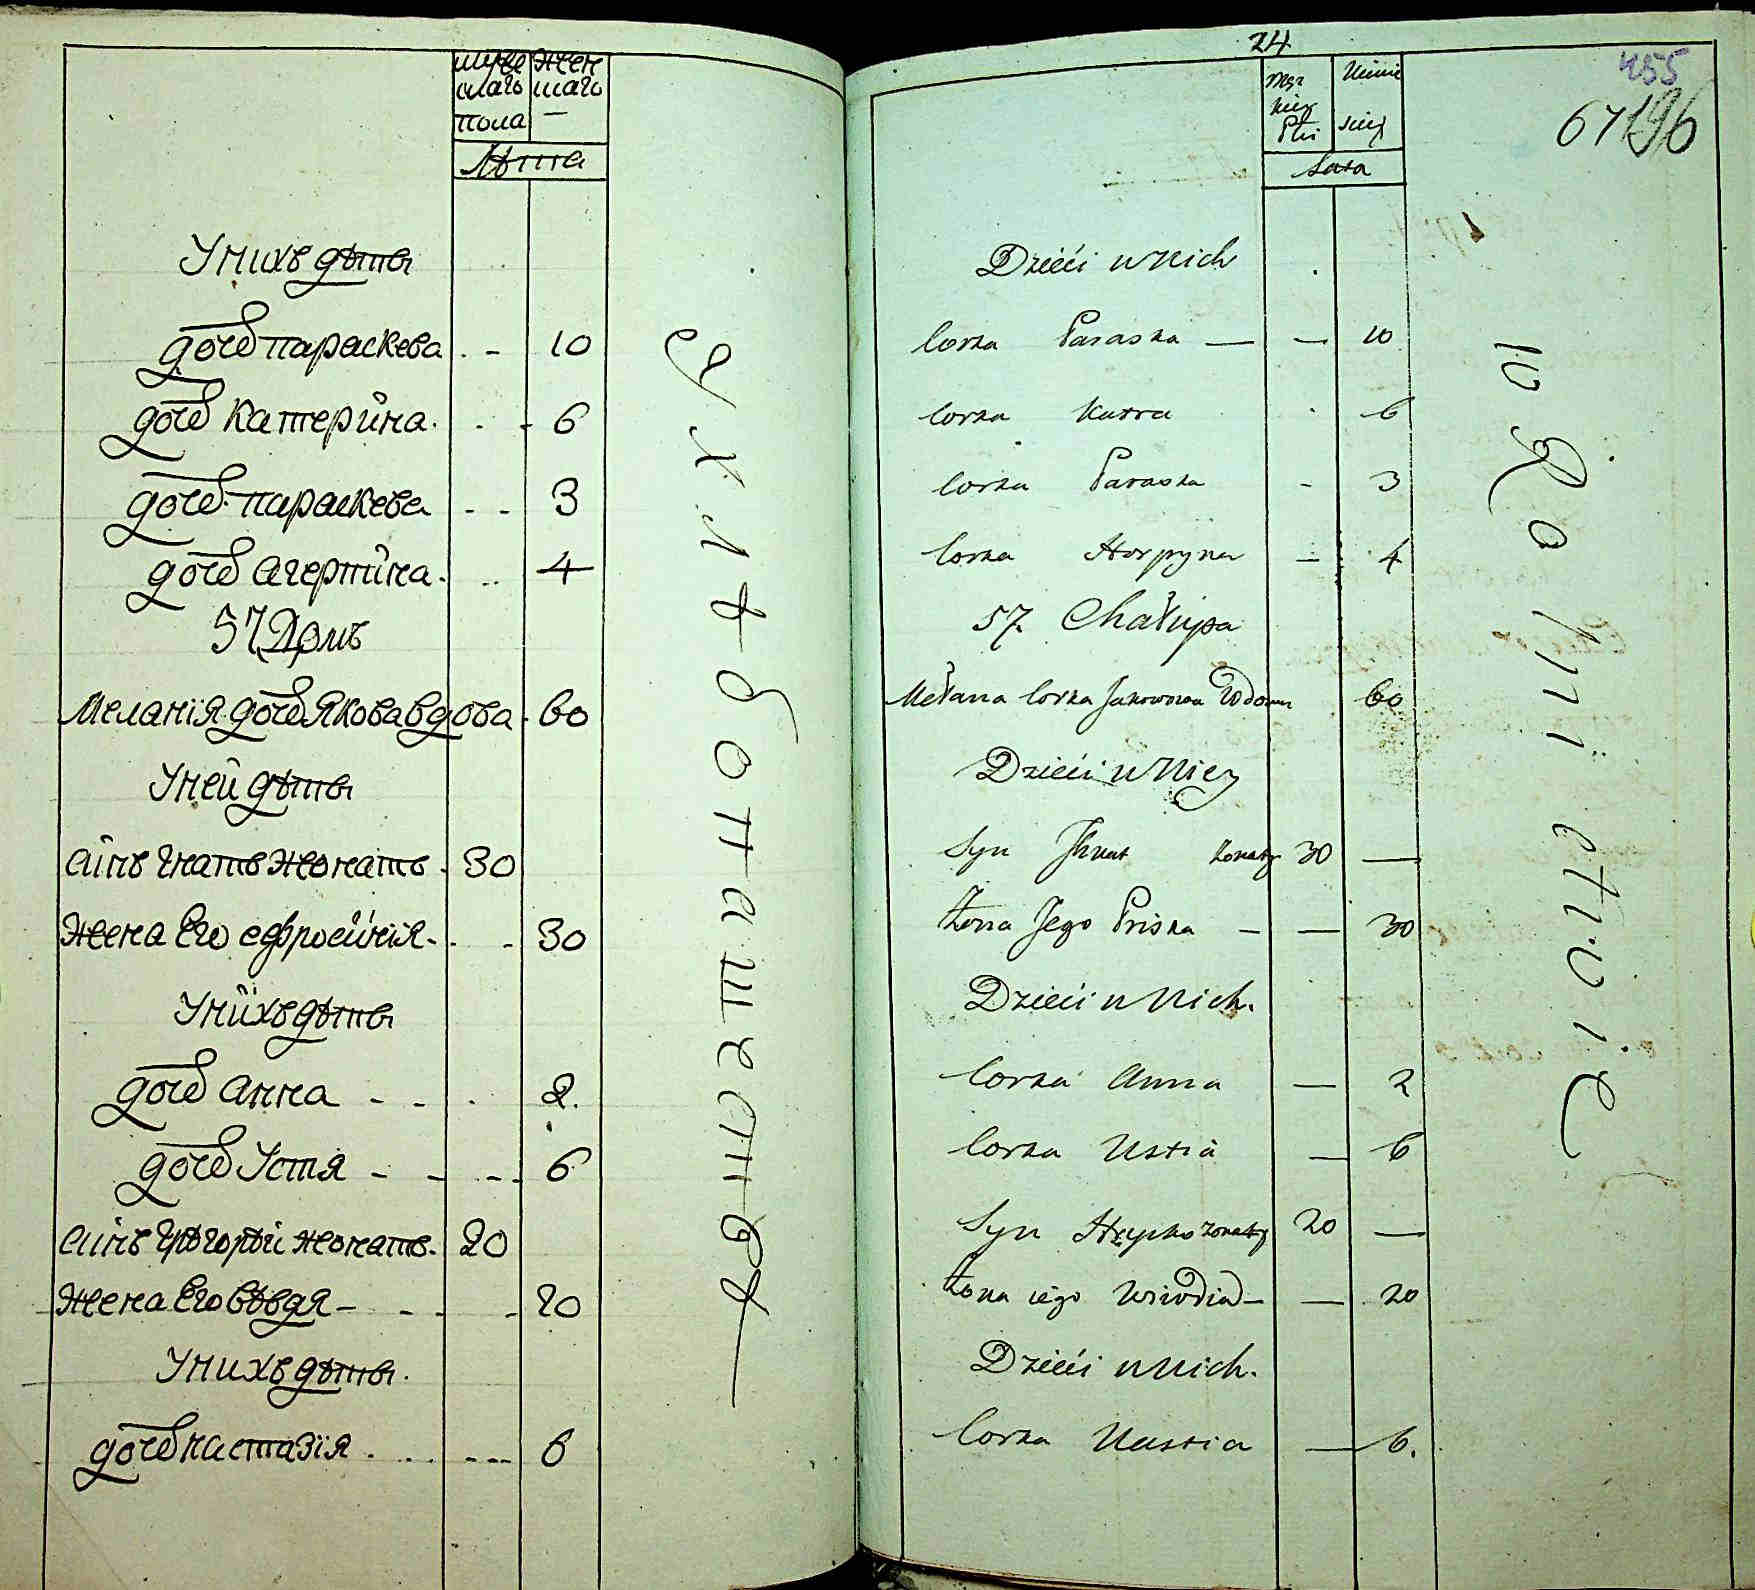 муже жен
скаго скаго
пола
Лѣта
У нихъ дѣти
дочь параскева 10
дочь катерина 6
дочь параскева 3
дочь агерпина 4
57 Домъ
Меланія дочь Якова вдова 60
У ней дѣти
синъ гнатъ жонатъ 30
жена его ефросинія 30
У нихъ дѣти
дочь анна 2
дочь Устя 6
синъ григорій жонатъ 20
жена его вѣвдя 20
У нихъ дѣти
дочь настазія 6
У хлѣбопашества
24
455
67 196
Lata
Dzieci u Nich
Corka Paraska 10
Corka Katra 6
Corka Paraska 3
Corka Horpyna 4
57. Chałupa
Mełana Corka Jakowowa Wdowa 60
Dzieci u Niey
Syn Jhnat żonaty 30
Żona Jego Priska 30
Dzieci u Nich.
Corka Anna 2
Corka Ustia 6
Syn Hryhko żonaty 20
Żona iego Wiwdia 20
Dzieci u Nich.
Corka Nastia 6.
w Rolnictwie